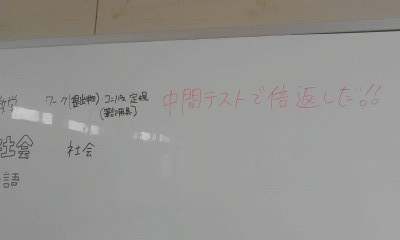 数学 ワーク(提出物) コンパス 定規 中間テストで倍返しだ!!
(筆記用具)
社会 社会
語